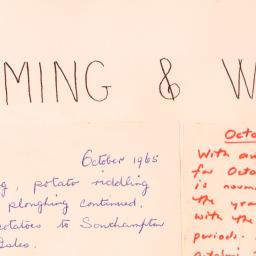 MING & W
October 1965
g, potato riddling
ploughing continued.
otatoes to Southampton
Bales.
Octo
With an
for Octo
is
the gra
with the
periods.